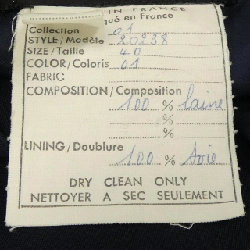 IN FRANCE
qué en France
Collection 01
STYLE/Modèle 20258
SIZE/Taille 40
COLOR/Coloris 01
FABRIC
COMPOSITION/Composition
100 % laine
%
%
LINING/Doublure
100 % soie
DRY CLEAN ONLY
NETTOYER A SEC SEULEMENT